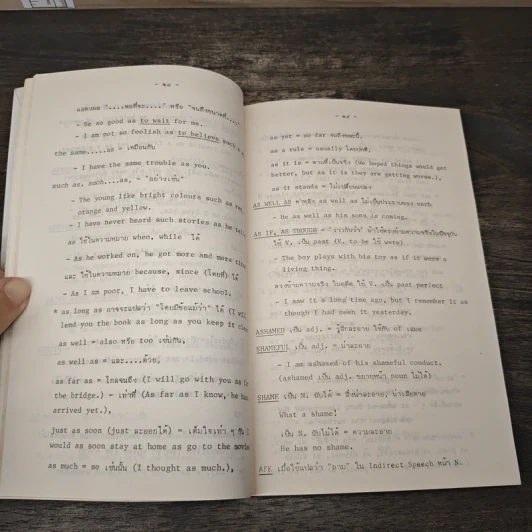 - ๒๘ -
แสดงผล "....พอที่จะ...." หรือ "จนถึงขนาดที่...."
- Be as good as to wait for me.
- I am not so foolish as to believe such
the same.....as = เหมือนกับ
- I have the same trouble as you.
such as, such....as, = "อย่างเช่น"
- The young like bright colours such as red
orange and yellow.
- I have never heard such stories as he tells
as ใช้ในความหมาย when, while ได้
- As he worked, on, he got more and more
และ ใช้ในความหมาย because, since (โดยที่) ได้
- As I am poor, I have to leave school.
* as long as อาจจะแปลว่า "โดยมีข้อแม้ว่า" ได้ (I will
lend you the book as long as you keep it
as well = also หรือ too เช่นกัน,
as well as = และ....ด้วย,
as far as = ไกลจนถึง (I will go with you as far
the bridge.) = เท่าที่ (As far as I know, he has
arrived yet.),
just as soon (just ละออกได้) = เต็มใจเท่า ๆ กัน
would as soon stay at home as go to the movies
as much = so เช่นนั้น (I thought as much.),
- ๒๙ -
as yet = so far จนถึงขณะนี้,
as a rule = usually โดยปกติ,
as it is = ตามที่เป็นจริง (We hoped things would get
better, but as it is they are getting worse.),
as it stands = ไม่เปลี่ยนแปลง
AS WELL AS คำหลัง as well as ไม่เป็นประธานของ verb
- He as well as his sons is coming.
AS IF, AS THOUGH = "ราวกับว่า" ถ้าใช้ตรงข้ามความจริงในปัจจุบัน
ใช้ V. เป็น past (V. to be ใช้ were)
- The boy plays with his toy as if it were a
living thing.
ตรงข้ามความจริง ในอดีต ใช้ V. เป็น past perfect
- I saw it a long time ago, but I remember it as
though I had seen it yesterday.
ASHAMED เป็น adj. = รู้สึกละอาย ใช้กับ of เสมอ
SHAMEFUL เป็น adj. = น่าละอาย
- I am ashamed of his shameful conduct.
(ashamed เป็น adj. ขยายหน้า noun ไม่ได้)
SHAME เป็น N. นับได้ = สิ่งน่าละอาย, น่าเสียดาย
What a shame!
เป็น N. นับไม่ได้ = ความละอาย
He has no shame.
ASK เมื่อใช้แปลว่า "ถาม" ใน Indirect Speech หน้า N.